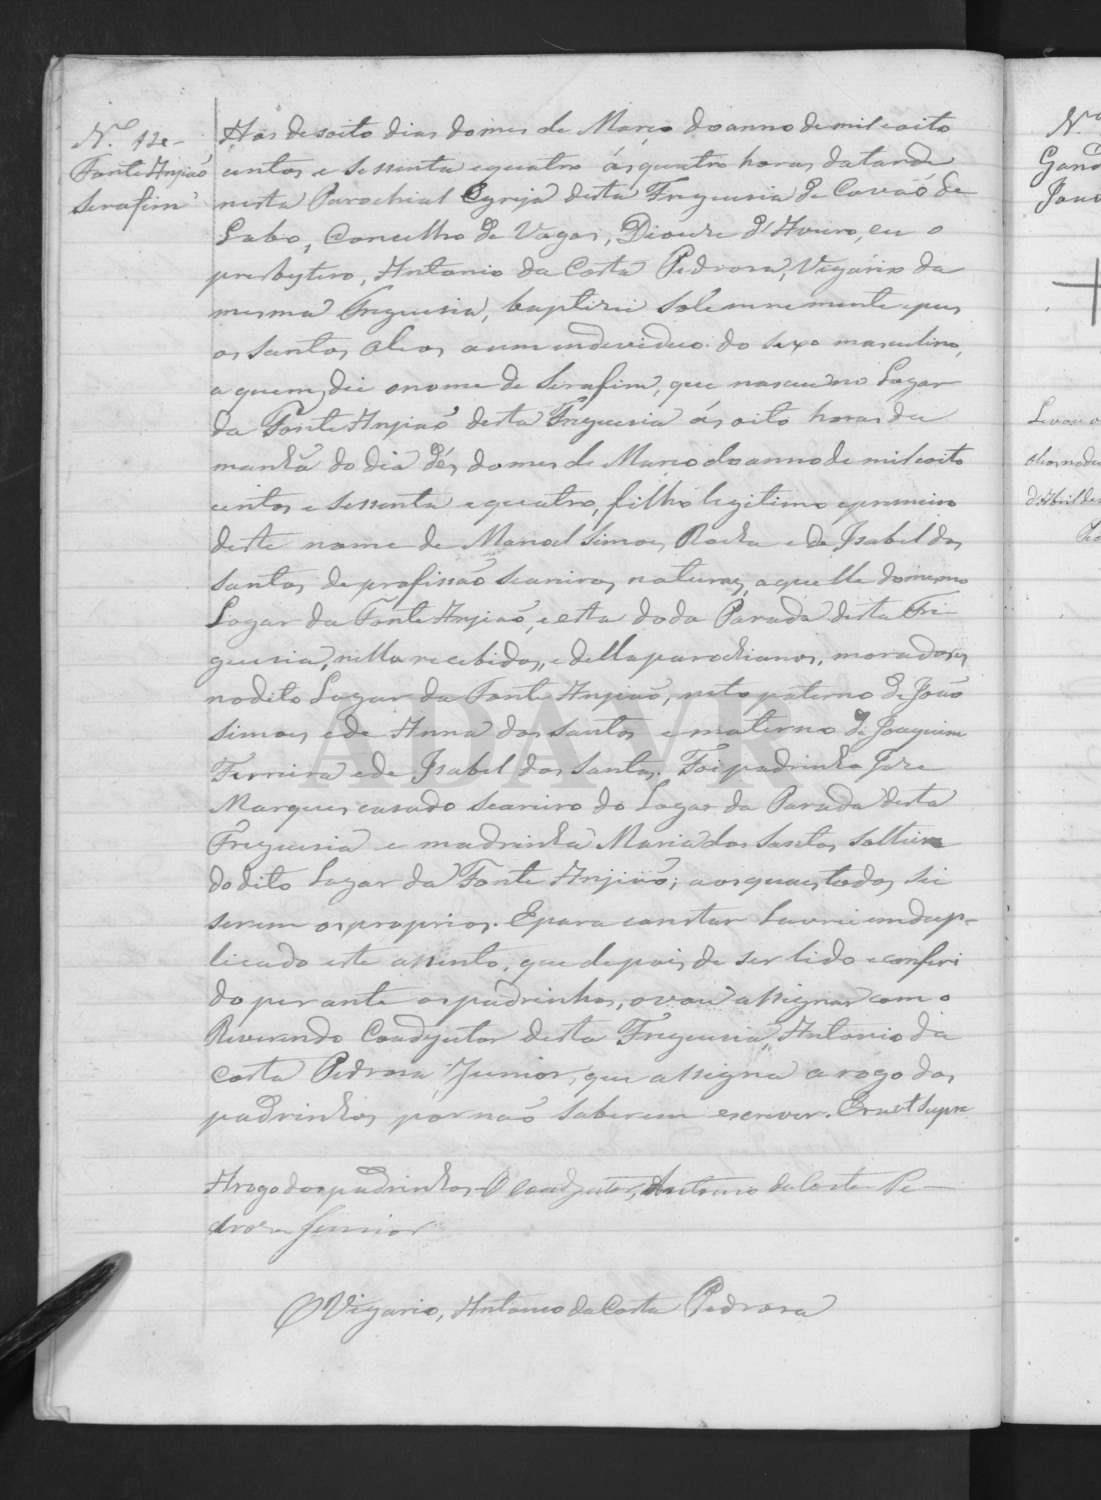 N.º 12
Fonte Anjiaõ
Serafim
Aos desoito dias do mes de Março do anno de mil e oito
centos e sessenta e quatro ás quatro horas da tarde
nesta Parochial Egreja desta Freguesia de Covaõ do
Lobo, Concelho de Vagos, Diocese d'Aveiro, eu o
presbytero, Antonio da Costa Pedrosa, Vigario da
mesma Freguesia, baptizei solemnemente e pus
os santos Oleos a um individuo do sexo masculino,
a quem dei o nome de Serafim, que nasceu no Lugar
da Fonte Anjiaõ desta Freguesia ás oito horas da
manhã do dia dés do mes de Março do anno de mil e oito
centos e sessenta e quatro, filho legitimo e primeiro
deste nome de Manoel Simoes Rocha e de Isabel dos
Santos de profissaõ seareiros naturaes, aquelle do mesmo
Lugar da Fonte Anjiaõ, e esta do da Parada desta Fre-
guesia, nella recebidos, e della parochianos, moradores
no dito Lugar da Fonte Anjiaõ, neto paterno de Joaõ
Simoes e de Anna dos Santos e materno de Joaquim
Ferreira e de Isabel dos Santos. Foi padrinho Joze
Marques casado seareiro do Lugar da Parada desta
Freguesia e madrinha Maria dos Santos solteira
do dito Lugar da Fonte Anjiaõ; aos quaes todos sei
serem os proprios. E para constar lavrei em dup-
licado este assento, que depois de ser lido e conferi
do perante os padrinhos, o vou assignar com o
Reverendo Coadjutor desta Freguesia, Antonio da
Costa Pedrosa Junior, que assigna a rogo dos
padrinhos por naõ saberem escrever. Era ut supra
A rogo dos padrinhos O Coadjutor, Antonio da Costa Pe-
drosa Junior
O Vigario, Antonio da Costa Pedrosa
ADAVR
N.º
Jo
Levou o